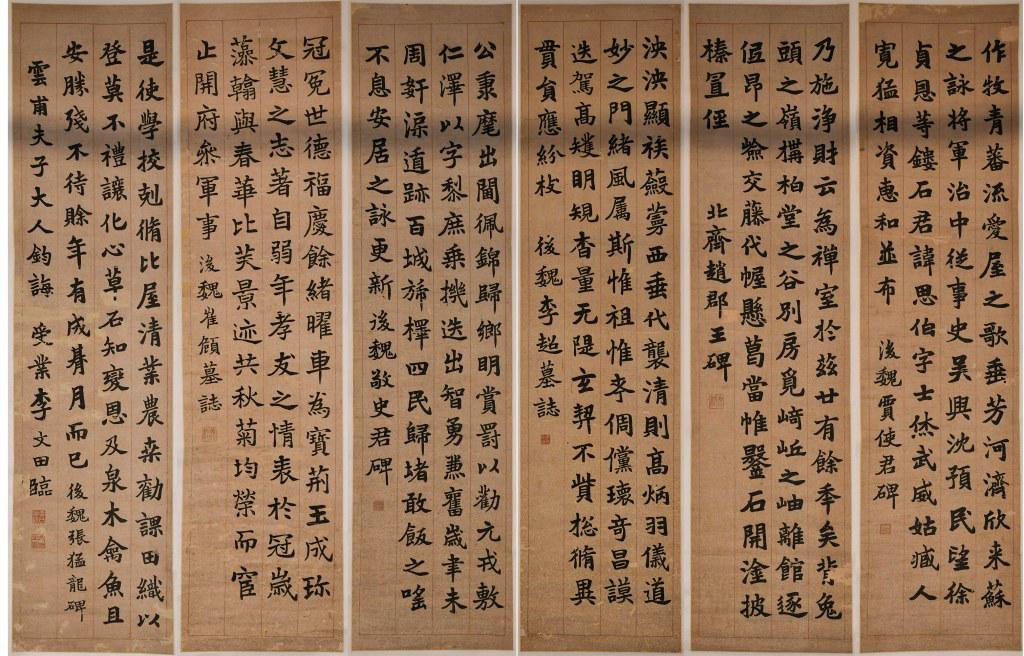 作牧青蕃流愛屋之歌垂芳河濟欣来蘇
之詠将軍治中従事史吴興沈預民望徐
貞思等鏤石君諱思伯字士休武威姑臧人
寛猛相資恵和並布 後魏賈使君碑
乃施浄財云為禅室於兹廿有餘年矣背兔
頭之嶺構柏堂之谷別房覓﨑岴之岫離館逐
伍昂之 交藤代幄懸葛當帷鑿石開淦披
榛罝徑 北齊趙郡王碑
泱泱顯族 萼西垂代襲清則髙炳羽儀道
妙之門緒風厲斯惟祖惟孝倜儻瓌奇昌謨
迭駕髙韄眀規杳量无隄玄契不貲総脩異
貫貟應紛杖 後魏李超墓誌
公秉麾出閫佩錦歸鄉明賞罰以勸元戎敷
仁澤以字黎庶乗機迭出智勇兼奮歲聿未
周奸湶遁跡百城 檡四民歸堵敢飯之嗂
不息安居之詠更新 後魏敬史君碑
冠冕世德福慶餘緒曜車為寶荊玉成珎
文慧之志著自弱年孝友之情表於冠歲
藻翰與春華比芙景迹共秋菊均榮而宦
止開府叅軍事 後魏崔頠墓誌
是使學挍剋脩比屋清業農桒勸課田織以
登莫不禮讓化心草石知變恩及泉木禽魚且
安勝殘不待賒年有成朞月而已 後魏張猛龍碑
雲甫夫子大人鈞誨 受業李文田臨